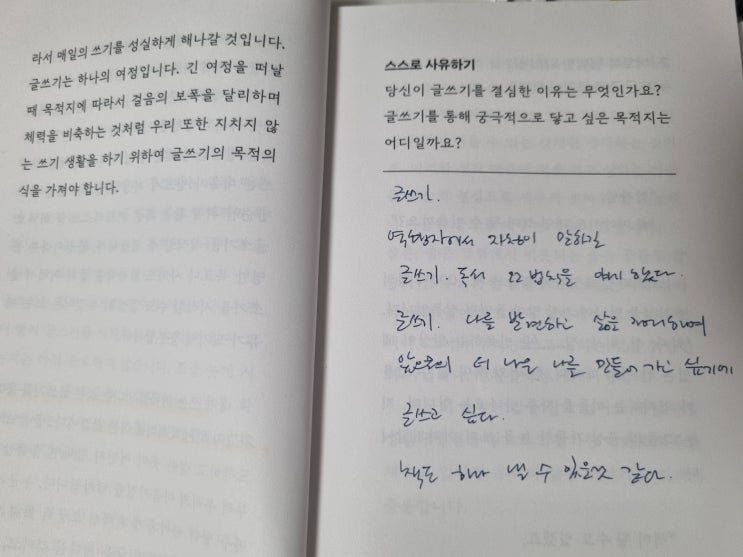 라서 매일의 쓰기를 성실하게 해나갈 것입니다.
글쓰기는 하나의 여정입니다. 긴 여정을 떠날
때 목적지에 따라서 걸음의 보폭을 달리하며
체력을 비축하는 것처럼 우리 또한 지치지 않
는 쓰기 생활을 하기 위하여 글쓰기의 목적의
식을 가져야 합니다.
스스로 사유하기
당신이 글쓰기를 결심한 이유는 무엇인가요?
글쓰기를 통해 궁극적으로 닿고 싶은 목적지는
어디일까요?
글쓰기.
역행자에서 자청이 말하길
글쓰기. 독서 22법칙을 얘기 했다.
글쓰기. 나를 발견하고 삶을 정리하며
앞으로의 더 나은 나를 만들어 가고 싶기에
글쓰고 싶다.
책도 하나 낼 수 있을것 같다.